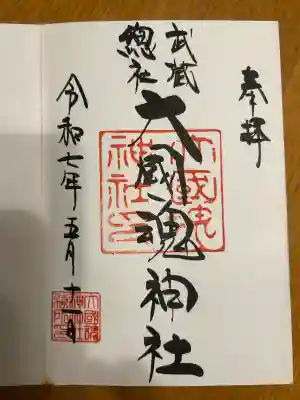 奉拝
武蔵
総社
大國魂神社
大國魂
神社印
令和七年五月十一日